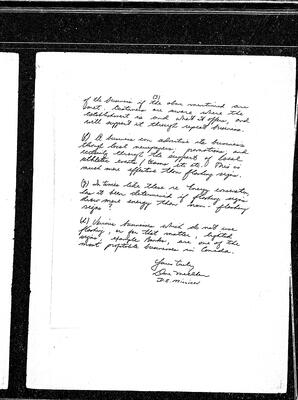 2)
of the business if the above mentioned are
met. Customers are aware where the
establishment is and what it offers, and
will support it through repeat business.
A business can advertise its business
through local newspapers, promotions, and
certainly through the support of local
athletic events / teams etc. etc. This is
much more effective than flashing signs.
In times like these re energy conservation
has it been determined if flashing signs
use more energy than non-flashing
signs?
Various businesses which do not use
flashing, or for that matter, lighted
signs, example Banks, are one of the
most profitable businesses in Canada.
Yours truly,
Dave